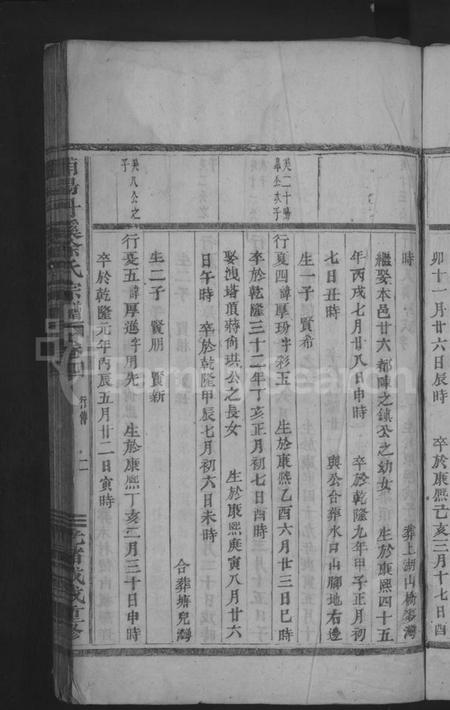 卯十一月廿六日辰時　卒於康熙己亥三月十七日酉
時　葬上湖山杨梁灣
繼娶本邑廿六都陳之鎮公之幼女　生於康熙四十五
年丙戌七月廿八日申時　卒於乾隆九年甲子正月初
七日丑時　與公合葬水口山腳地右邊
生一子　賢希
癸二十陽
臯公次子
行夏四諱厚玢字彩玉　生於康熙乙酉六月廿三日巳時
卒於乾隆三十二年丁亥正月初七日酉時
娶洩塔頂蔣向珙公之長女　生於康熙庚寅八月廿六
日午時　卒於乾隆甲辰七月初六日未時
合葬塘兒灣
癸八公之
子
行夏五諱厚進字用先　生於康熙丁亥二月三十日申時
生二子　賢朋　賢新
卒於乾隆元年丙辰五月廿二日寅時
氏宗譜
行傳
二
光緒戊戌重修